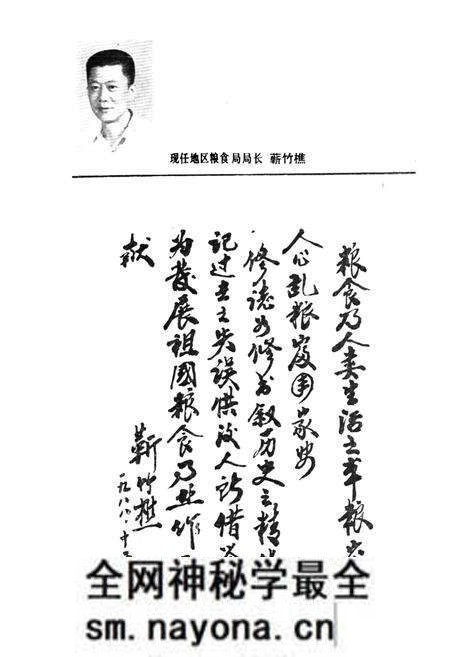 现任地区粮食局局长 蕲竹樵
粮食乃人类生活之本粮
人心乱粮
修誌如修书叙历史之精
记过去之失误供后人所借
为發展祖國粮食乃作
献
蕲竹樵
一九八八、十
全网神秘学最全
sm.nayona.cn